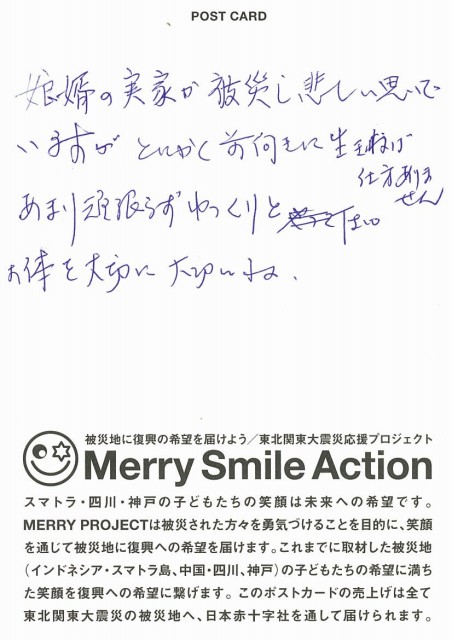 POST CARD
娘婿の実家が被災し悲しい思いで
いますが とにかく前向きに生きねば
仕方ありま
せん
あまり頑張らずゆっくりと 下さい
お体を大切に 大切にね、
被災地に復興の希望を届けよう/東北関東大震災応援プロジェクト
Merry Smile Action
スマトラ・四川・神戸の子どもたちの笑顔は未来への希望です。
MERRY PROJECTは被災された方々を勇気づけることを目的に、笑顔
を通じて被災地に復興への希望を届けます。これまでに取材した被災地
(インドネシア・スマトラ島、中国・四川、神戸)の子どもたちの希望に満ち
た笑顔を復興への希望に繋げます。このポストカードの売上げは全て
東北関東大震災の被災地へ、日本赤十字社を通して届けられます。